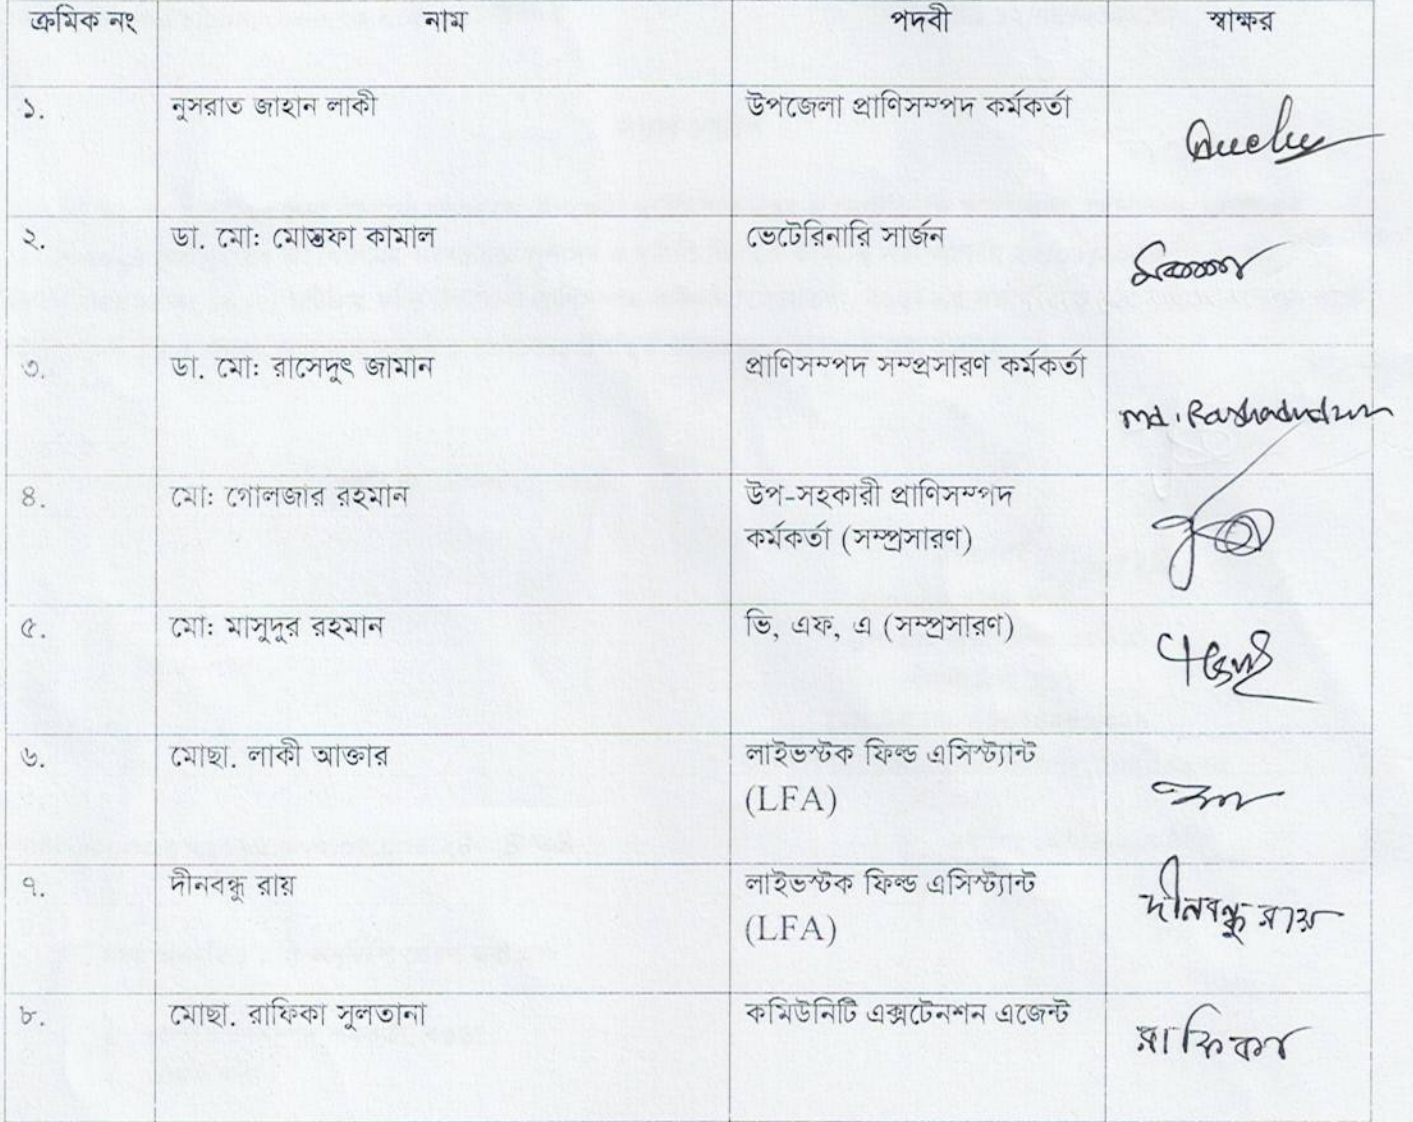 ক্রমিক নং নাম পদবী স্বাক্ষর
১. নুসরাত জাহান লাকী উপজেলা প্রাণিসম্পদ কর্মকর্তা
২. ডা. মো: মোস্তফা কামাল ভেটেরিনারি সার্জন
৩. ডা. মো: রাসেদুৎ জামান প্রাণিসম্পদ সম্প্রসারণ কর্মকর্তা
৪. মো: গোলজার রহমান উপ-সহকারী প্রাণিসম্পদ
কর্মকর্তা (সম্প্রসারণ)
৫. মো: মাসুদুর রহমান ভি, এফ, এ (সম্প্রসারণ)
৬. মোছা. লাকী আক্তার লাইভস্টক ফিল্ড এসিস্ট্যান্ট
(LFA)
৭. দীনবন্ধু রায় লাইভস্টক ফিল্ড এসিস্ট্যান্ট
(LFA) দীনবন্ধু রায়
৮. মোছা. রাফিকা সুলতানা কমিউনিটি এক্সটেনশন এজেন্ট
রাফিকা